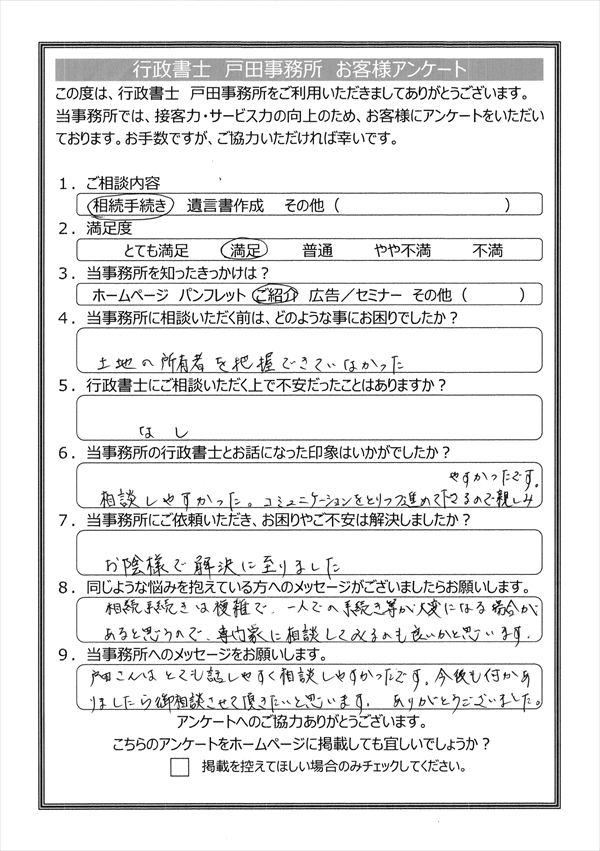 行政書士　戸田事務所　お客様アンケート
この度は、行政書士　戸田事務所をご利用いただきましてありがとうございます。
当事務所では、接客力・サービス力の向上のため、お客様にアンケートをいただい
ております。お手数ですが、ご協力いただければ幸いです。
1．ご相談内容
相続手続き　遺言書作成　その他（　　　　　　　　　）
2．満足度
とても満足　満足　普通　やや不満　不満
3．当事務所を知ったきっかけは？
ホームページ　パンフレット　ご紹介　広告／セミナー　その他（　　　）
4．当事務所に相談いただく前は、どのような事にお困りでしたか？
土地の所有者を把握できていなかった
5．行政書士にご相談いただく上で不安だったことはありますか？
なし
6．当事務所の行政書士とお話になった印象はいかがでしたか？
相談しやすかった。コミュニケーションをとりつつ進めて下さるので親しみ
やすかったです。
7．当事務所にご依頼いただき、お困りやご不安は解決しましたか？
お陰様で解決に至りました
8．同じような悩みを抱えている方へのメッセージがございましたらお願いします。
相続手続きは複雑で、一人での手続き等が大変になる場合が
あると思うので、専門家に相談してみるのも良いかと思います。
9．当事務所へのメッセージをお願いします。
戸田さんはとても話しやすく相談しやすかったです。今後も何かあ
りましたら御相談させて頂きたいと思います。ありがとうございました。
アンケートへのご協力ありがとうございます。
こちらのアンケートをホームページに掲載しても宜しいでしょうか？
掲載を控えてほしい場合のみチェックしてください。